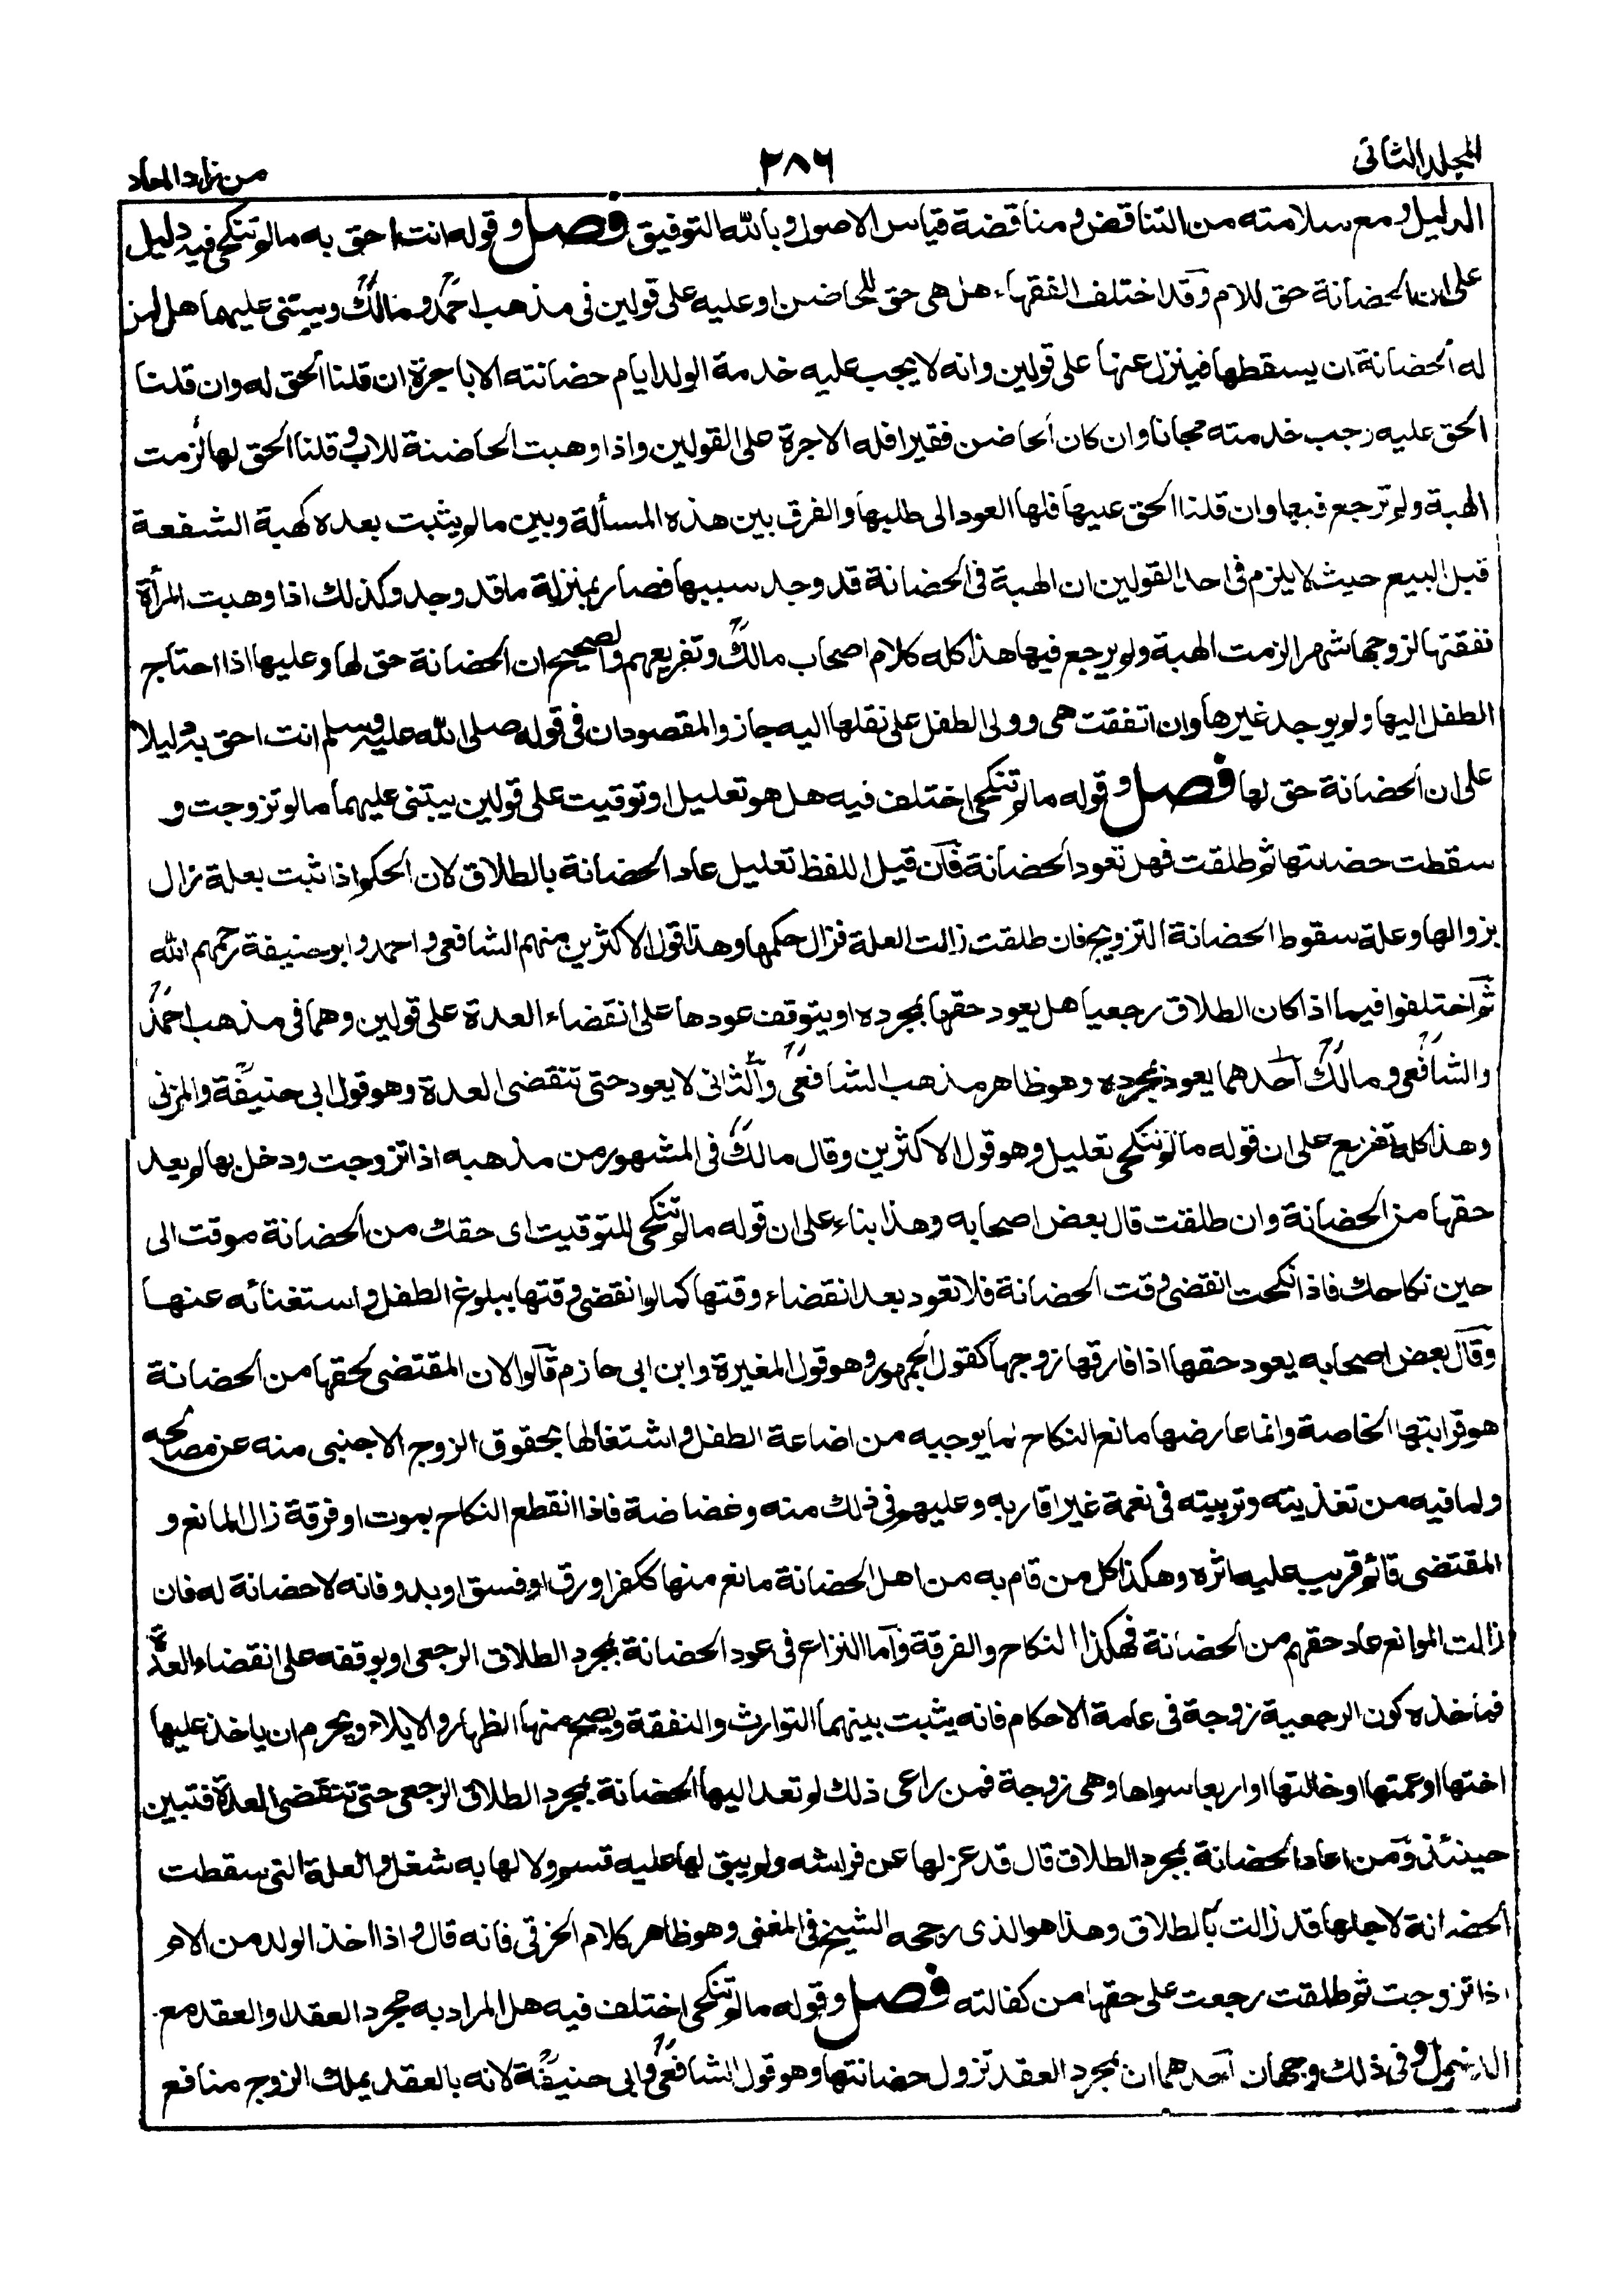 المجلد الثانى
٢٨٦
من زاد المعاد
الدليل ومع سلامته من التناقض ومناقضة قياس الاصول وبالله التوفيق فصل وقوله انت احق به مالم تنكحى فيه دليل
على ان الحضانة حق للام وقد اختلف الفقهاء هل هى حق للحاضن او عليه على قولين فى مذهب احمد ومالك ويبتنى عليهما هل لمن
له الحضانة ان يسقطها فينزل عنها على قولين وانه لا يجب عليه خدمة الولد ايام حضانته الا باجرة ان قلنا الحق له وان قلنا
الحق عليه وجب خدمته مجانا وان كان الحاضن فقيرا فله الاجرة على القولين واذا وهبت الحاضنة للاب وقلنا الحق لها لزمت
الهبة ولم ترجع فيها وان قلنا الحق عليها فلها العود الى طلبها والفرق بين هذه المسألة وبين مالم يثبت بعده كهبة الشفعة
قبل البيع حيث لا يلزم فى احد القولين ان الهبة فى الحضانة قد وجد سببها فصار بمنزلة ما قد وجد وكذلك اذا وهبت المرأة
نفقتها لزوجها شهرا لزمت الهبة ولم يرجع فيها هذا كله كلام اصحاب مالك وتفريعهم والصحيح ان الحضانة حق لها وعليها اذا احتاج
الطفل اليها ولم يوجد غيرها وان اتفقت هى وولى الطفل على نقلها اليه جاز والمقصود ان فى قوله صلى الله عليه وسلم انت احق به دليلا
على ان الحضانة حق لها فصل وقوله مالم تنكحى اختلف فيه هل هو تعليل او توقيت على قولين يبتنى عليهما مالو تزوجت و
سقطت حضانتها ثم طلقت فهل تعود الحضانة فان قيل اللفظ تعليل عاد الحضانة بالطلاق لان الحكم اذا ثبت بعلة زال
بزوالها وعلة سقوط الحضانة التزويج فان طلقت زالت العلة فزال حكمها وهذا قول الاكثرين منهم الشافعى واحمد وابو حنيفة رحمهم الله
ثم اختلفوا فيما اذا كان الطلاق رجعيا هل يعود حقها بمجرده او يتوقف عودها على انقضاء العدة على قولين وهما فى مذهب احمد
والشافعى ومالك احدهما يعود بمجرده وهو ظاهر مذهب الشافعى والثانى لا يعود حتى تنقضى العدة وهو قول ابى حنيفة والمزنى
وهذا كله تفريع على ان قوله مالم تنكحى تعليل وهو قول الاكثرين وقال مالك فى المشهور من مذهبه اذا تزوجت ودخل بها لم يعد
حقها من الحضانة وان طلقت قال بعض اصحابه وهذا بناء على ان قوله مالم تنكحى للتوقيت اى حقك من الحضانة موقت الى
حين نكاحك فاذا نكحت انقضى وقت الحضانة فلا تعود بعد انقضاء وقتها كما لو انقضى وقتها ببلوغ الطفل واستغنائه عنها
وقال بعض اصحابه يعود حقها اذا فارقها زوجها كقول الجمهور وهو قول المغيرة وابن ابى حازم قالوا لان المقتضى لحقها من الحضانة
هو قرابتها الخاصة وانما عارضها مانع النكاح لما يوجبه من اضاعة الطفل واشتغالها بحقوق الزوج الاجنبى منه عن مصالحه
ولما فيه من تغذيته وتربيته فى نعمة غير اقاربه وعليهم فى ذلك منه وغضاضة فاذا انقطع النكاح بموت او فرقة زال المانع و
المقتضى قائم قريب عليه اثره وهكذا كل من قام به من اهل الحضانة مانع منها ككفر او رق او فسق او بدو فانه لا حضانة له فان
زالت الموانع عاد حقهم من الحضانة فهكذا النكاح والفرقة واما النزاع فى عود الحضانة بمجرد الطلاق الرجعى او بوقفه على انقضاء العدة
فمأخذه كون الرجعية زوجة فى عامة الاحكام فانه يثبت بينهما التوارث والنفقة ويصح منها الظهار والايلاء ويحرم ان ياخذ عليها
اختها او عمتها او خالتها او اربعا سواها وهى زوجة فمن راعى ذلك لم تعد اليها الحضانة بمجرد الطلاق الرجعى حتى تنقضى العدة فتبين
حينئذ ومن اعاد الحضانة بمجرد الطلاق قال قد عزلها عن فراشه ولم يبق لها عليه قسم ولا لها به شغل والعلة التى سقطت
الحضانة لاجلها قد زالت بالطلاق وهذا هو الذى رجحه الشيخ فى المغنى وهو ظاهر كلام الخرقى فانه قال واذا اخذ الولد من الام
اذا تزوجت ثم طلقت رجعت على حقها من كفالته فصل وقوله مالم تنكحى اختلف فيه هل المراد به مجرد العقد او العقد مع
الدخول وفى ذلك وجهان احدهما ان بمجرد العقد تزول حضانتها وهو قول الشافعى وابى حنيفة لانه بالعقد يملك الزوج منافع